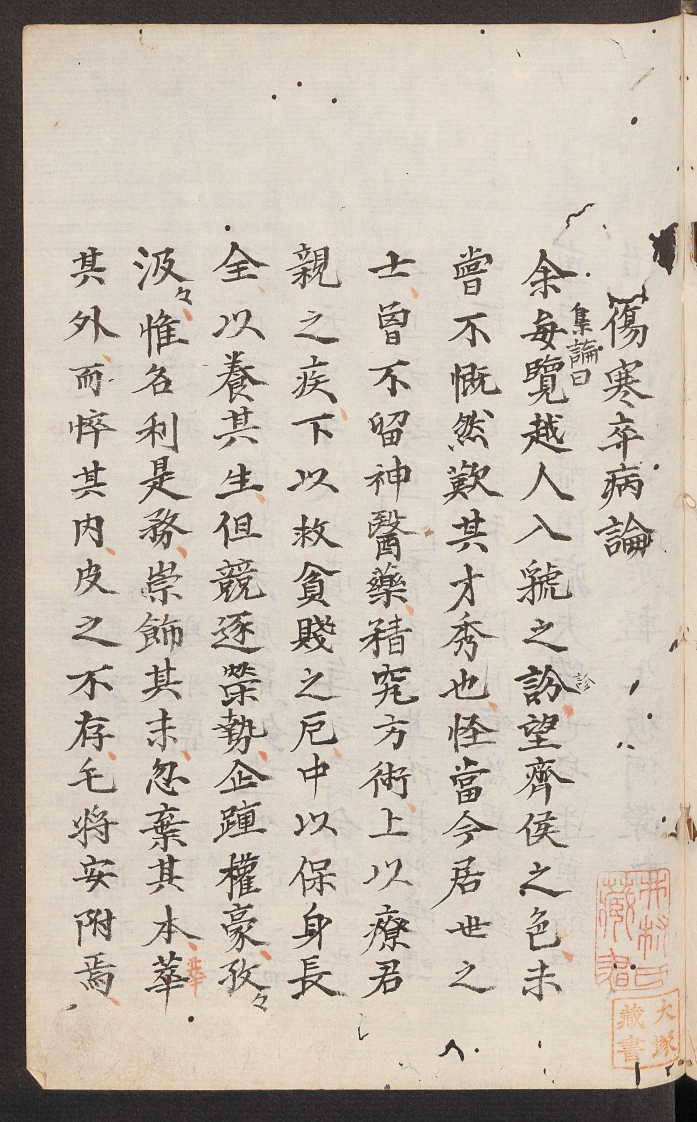 傷寒卒病論
集論曰
余每覽越人入虢之訜望齊侯之色未
診
嘗不慨然歎其才秀也怪當今居世之
士曾不留神醫藥精究方術上以療君
親之疾下以救貧賤之厄中以保身長
全以養其生但競逐榮勢企踵權豪孜々
汲々惟名利是務崇飾其末忽棄其本華
其外而悴其內皮之不存毛將安附焉
藏書
大塚
藏書